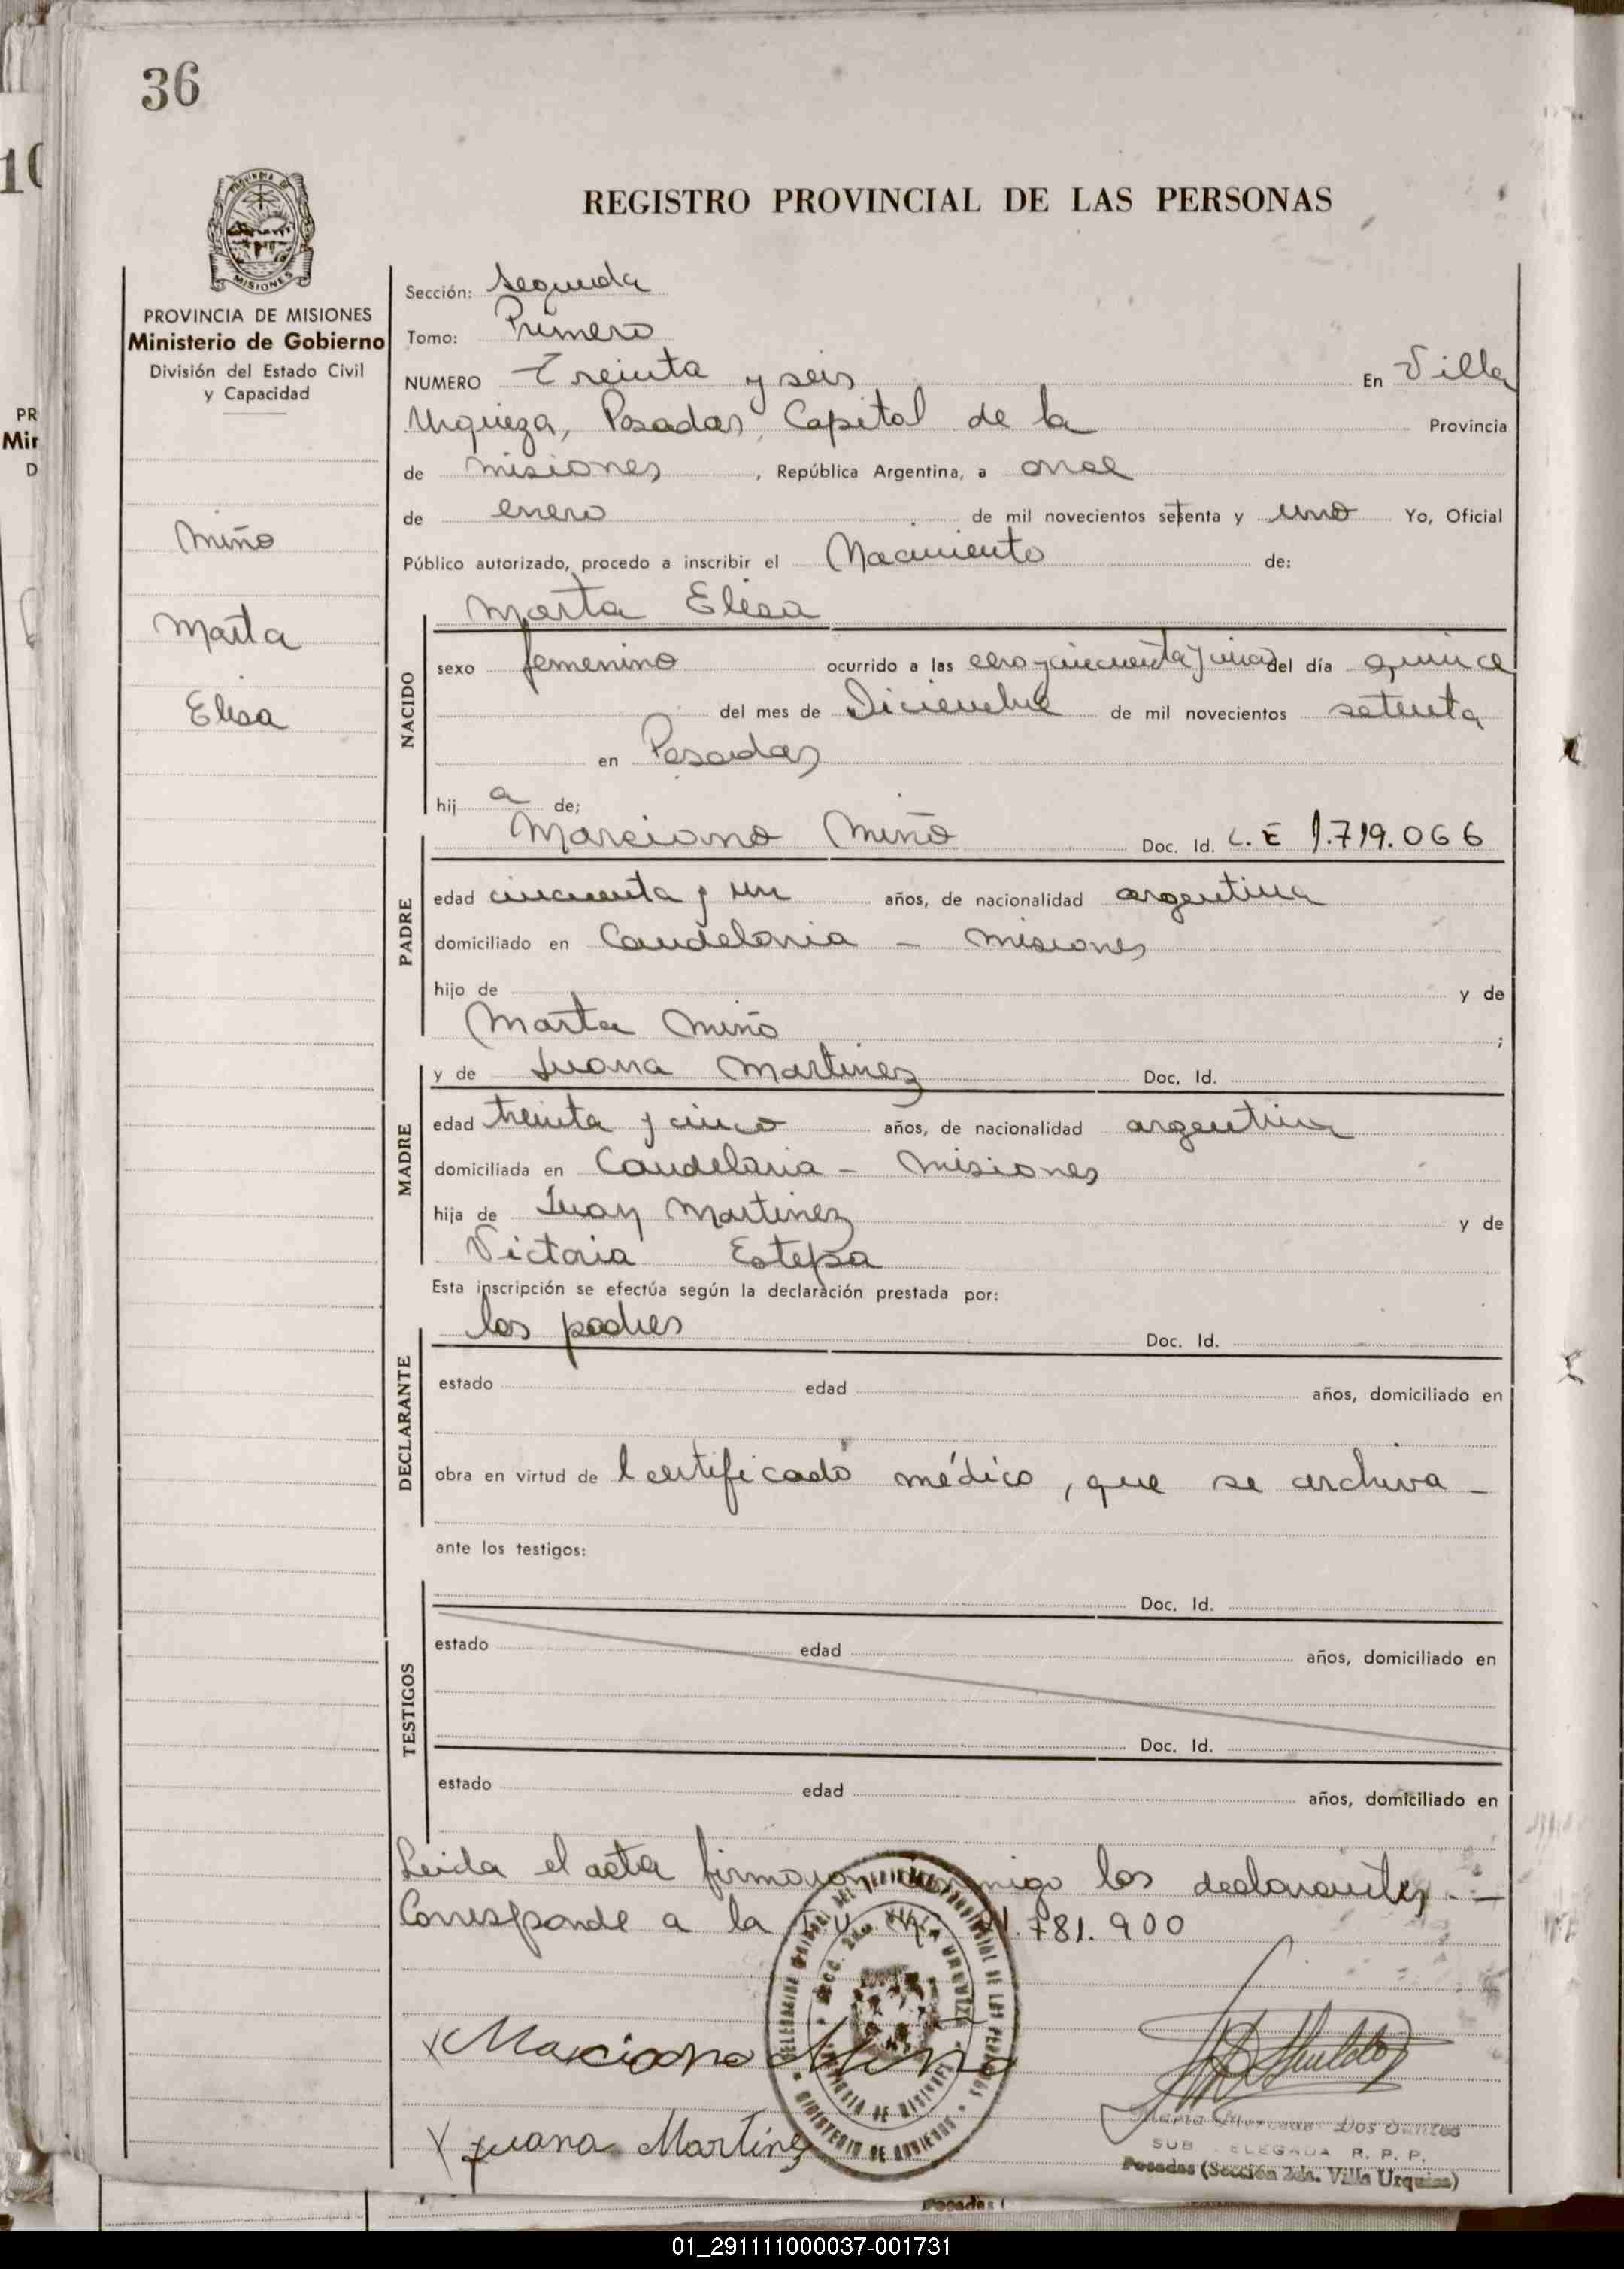 36
REGISTRO PROVINCIAL DE LAS PERSONAS
MISIONES
PROVINCIA DE MISIONES
Ministerio de Gobierno
División del Estado Civil
y Capacidad
Miño
Marta
Elisa
Sección: Segunda
Tomo: Primero
NUMERO Treinta y seis En Villa
Urquiza, Posadas, Capital de la Provincia
de Misiones, República Argentina, a once
de enero de mil novecientos setenta y uno Yo, Oficial
Público autorizado, procedo a inscribir el Nacimiento de:
Marta Elisa
NACIDO
sexo femenino ocurrido a las cero y cincuenta y una del día quince
del mes de Diciembre de mil novecientos setenta
en Posadas
hija de;
Marciano Miño Doc. Id. L.E 1.719.066
PADRE
edad cincuenta y un años, de nacionalidad argentina
domiciliado en Candelaria - Misiones
hijo de y de
Marta Miño ;
y de Juana Martinez Doc. Id.
MADRE
edad treinta y cinco años, de nacionalidad argentina
domiciliada en Candelaria - Misiones
hija de Juan Martinez y de
Victoria Estepa
Esta inscripción se efectúa según la declaración prestada por:
los padres Doc. Id.
DECLARANTE
estado edad años, domiciliado en
obra en virtud de l certificado médico, que se archiva -
ante los testigos:
Doc. Id.
TESTIGOS
estado edad años, domiciliado en
Doc. Id.
estado edad años, domiciliado en
Leida el acta firmaron conmigo los declarantes. -
Corresponde a la 21.781.900
x Marciano Miño
x Juana Martínez
Maria Mercedes Dos Santos
SUB DELEGADA R. P. P.
Posadas (Sección 2da. Villa Urquiza)
Posadas (
01_291111000037-001731